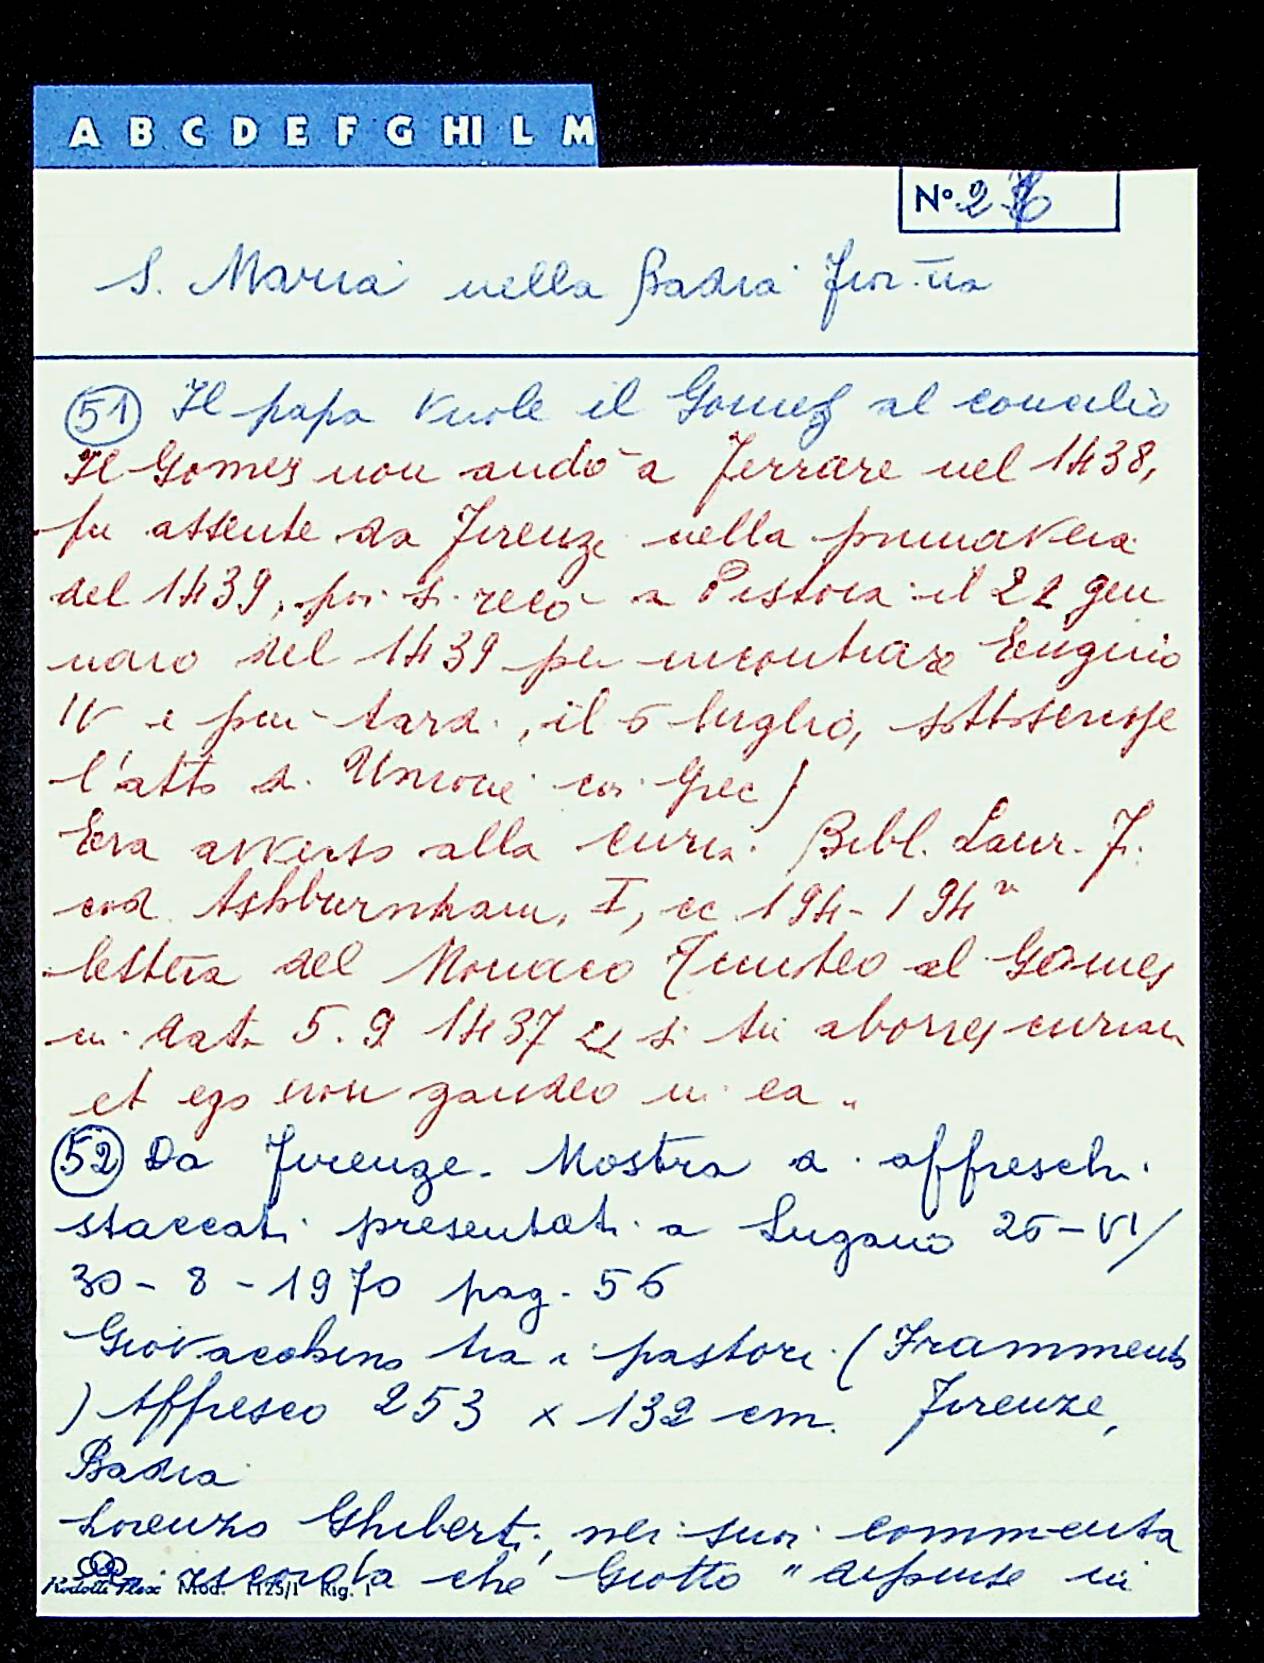 A B C D E F G HI L M
N° 26
S. Maria nella Badia Fior.na
51 Il papa vuole il Gomez al concilio
Il Gomes non andò a Ferrare nel 1438,
fu assente da Firenze nella primavera
del 1439, poi si recò a Pistoia il 22 gen
naio del 1439 per incontrare Eugenio
IV e piu tardi, il 5 luglio, sottoscrisse
l'atto di Unione coi Greci
Era avverso alla curia. Bibl. Laur. F.
cod. Ashburnham, I, cc 194-194v
lettera del Monaco Timoteo al Gomes
in data 5.9 1437 " si tu aborres curiam
et ego non gaudeo in ea "
52 Da Firenze. Mostra di affreschi
staccati presentati a Lugano 25-VI/
30-8-1970 pag. 56
Giovacchino tra i pastori (Frammento
) Affresco 253 x 132 cm. Firenze,
Badia
Lorenzo Ghiberti, nei suoi commenta
ricorda che Giotto "dipinse in
Mod. 1125/1 Rig. 1